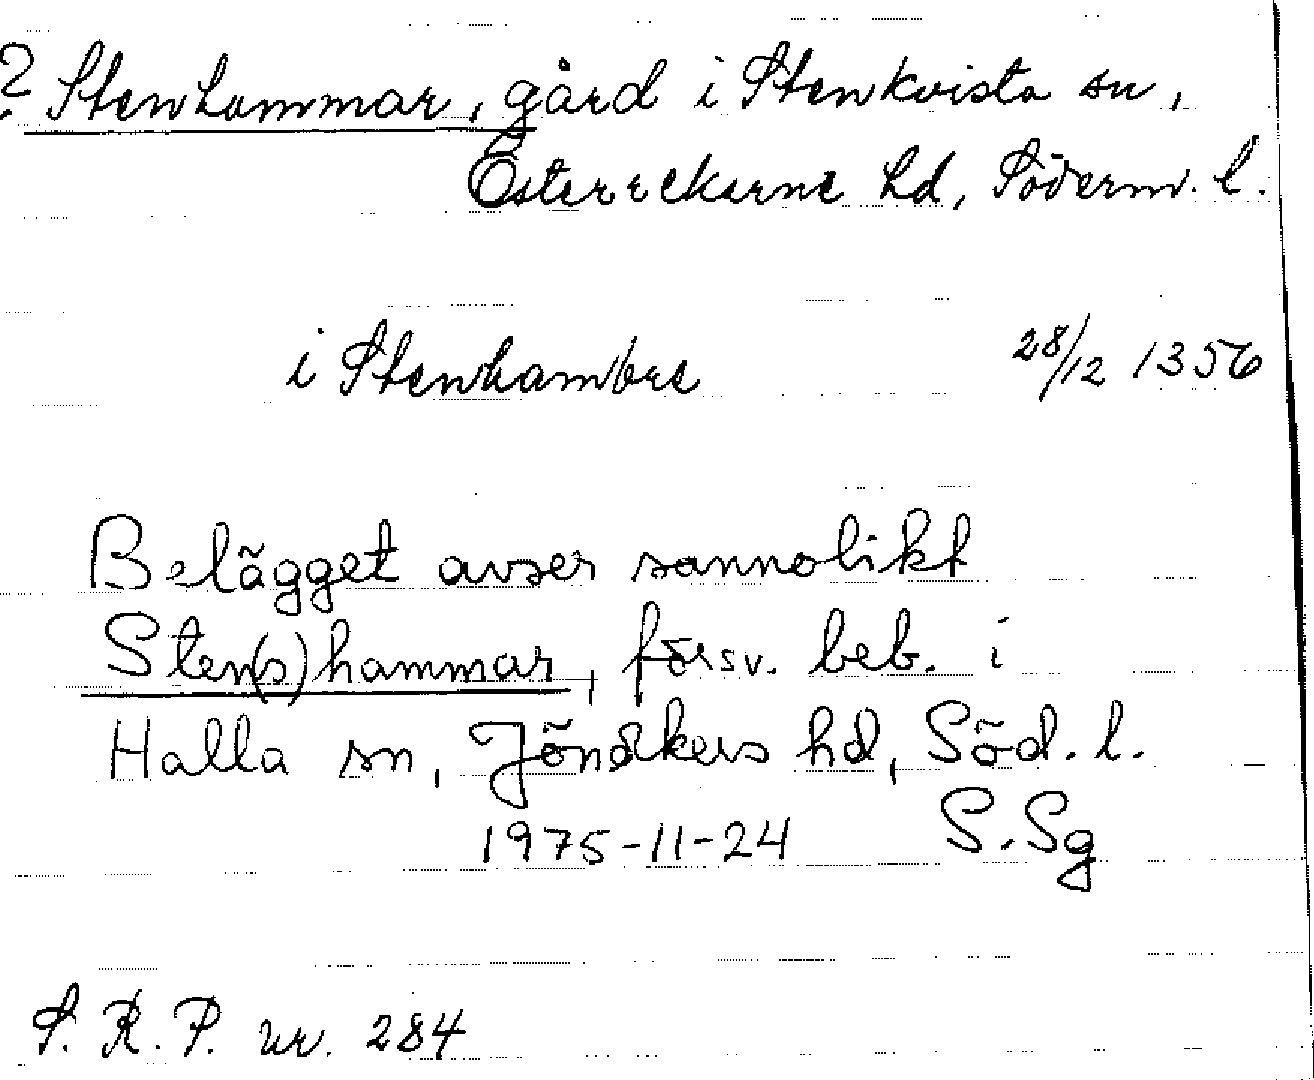 ? Stenhammar, gård i Stenkvista sn,
Österrekarne hd, Söderm. l.
i Stenhambre 28/12 1356
Belägget avser sannolikt
Sten(s)hammar, försv. beb. i
Halla sn, Jönåkers hd, Söd. l.
1975-11-24 S.Sg
S. R. P. nr. 284